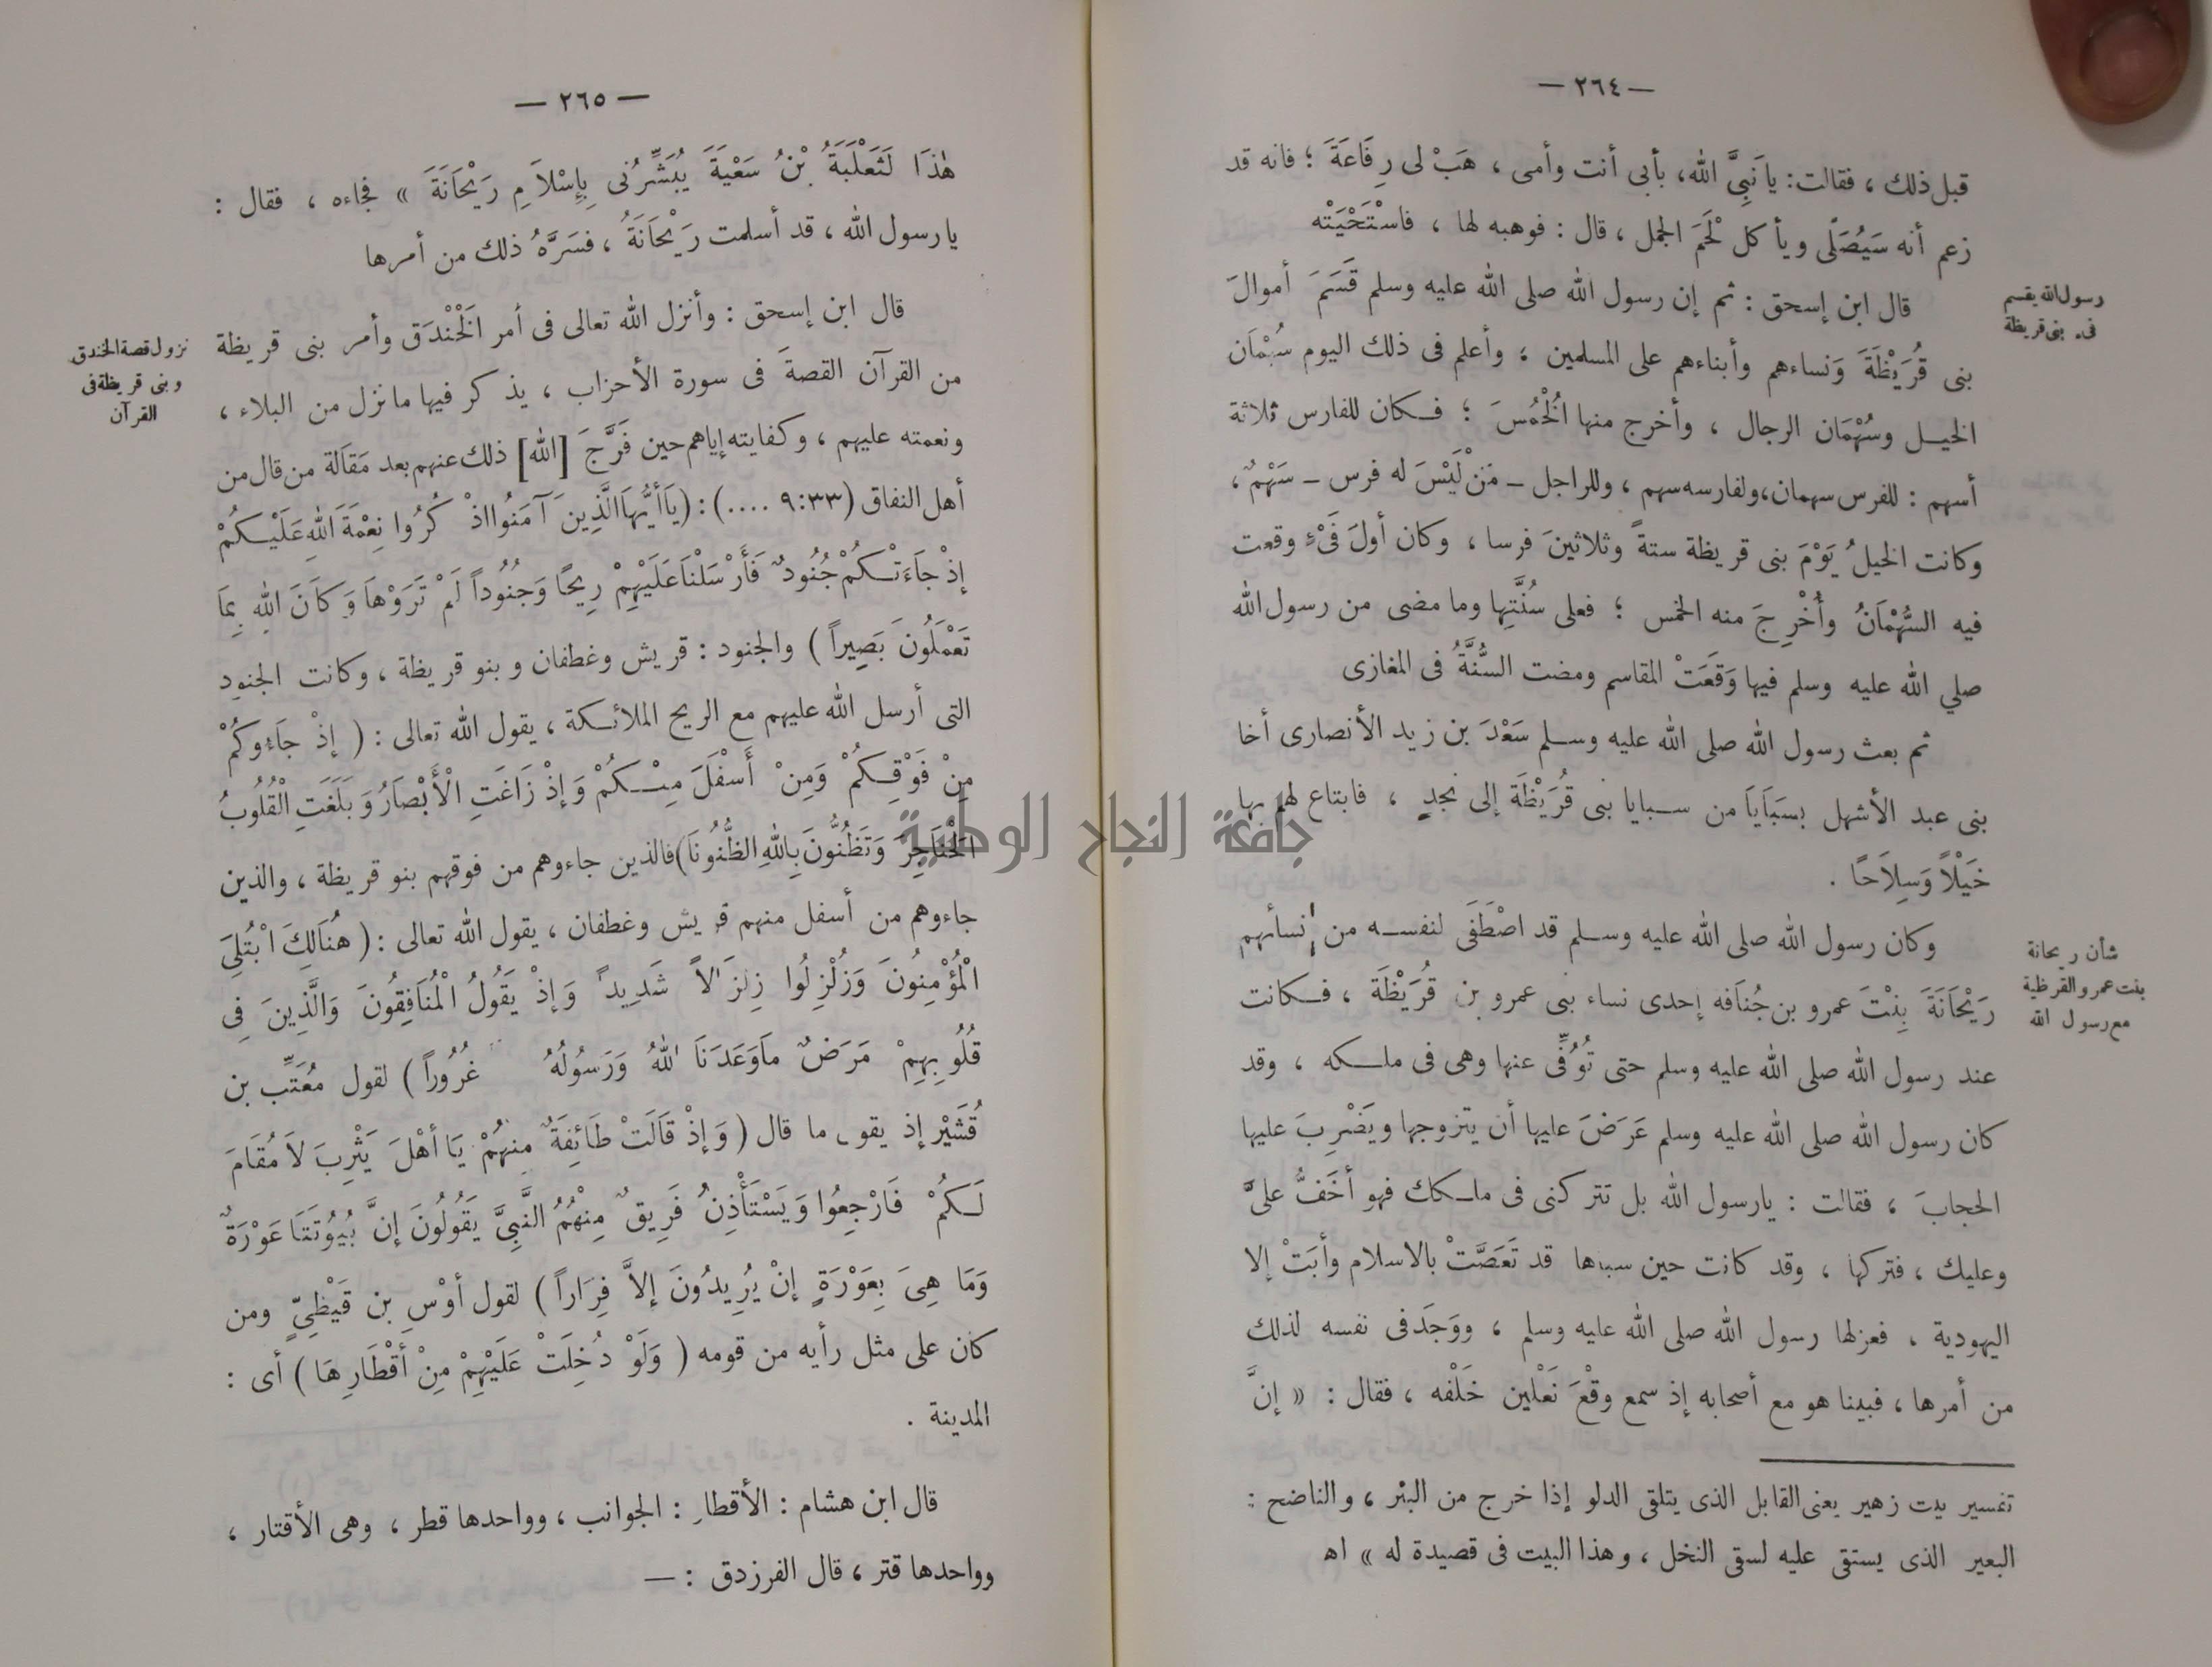 — ٢٦٤ —
قبل ذلك ، فقالت: يا نَبِيَّ الله، بأبى أنت وأمى ، هَبْ لى رِفَاعَةَ ؛ فانه قد
زعم أنه سَيُصَلّى ويأكل لْحَمَ الجمل ، قال : فوهبه لها ، فاسْتَحْيَتْه
رسول الله يقسم
فىء بنى قريظة
قال ابن إسحق : ثم إن رسول الله صلى الله عليه وسلم قَسَمَ أموالَ
بنى قُرَيْظَةَ وَنساءهم وأبناءهم على المسلمين ، وأعلم فى ذلك اليوم سُهْمَان
الخيل وسُهْمَان الرجال ، وأخرج منها الْخُمُسَ ؛ فكان للفارس ثلاثة
أسهم : للفرس سهمان، ولفارسه سهم ، وللراجل — مَنْ لَيْسَ له فرس — سَهْمٌ ،
وكانت الخيلُ يَوْمَ بنى قريظة ستةً وثلاثينَ فرسا ، وكان أولَ فَىْءٍ وقعت
فيه السُّهْمَانُ وأُخْرِجَ منه الخمس ؛ فعلى سُنَّتِها وما مضى من رسول الله
صلي الله عليه وسلم فيها وَقَعَتْ المقاسم ومضت السُّنَّةُ فى المغازى
ثم بعث رسول الله صلى الله عليه وسلم سَعْدَ بن زيد الأنصارى أخا
بنى عبد الأشهل بسَبَايَا من سبايا بنى قُرَيْظَةَ إلى نجدٍ ، فابتاع لهم بها
خَيْلاً وَسِلاَحًا .
شأن ريحانة
بنت عمرو القرظية
مع رسول الله
وكان رسول الله صلى الله عليه وسلم قد اصْطَفَى لنفسه من نسائهم
رَيْحَانَةَ بِنْتَ عمرو بن جُنَافه إحدى نساء بنى عمرو بن قُرَيْظَة ، فكانت
عند رسول الله صلى الله عليه وسلم حتى تُوُفِّىَ عنها وهى فى ملكه ، وقد
كان رسول الله صلى الله عليه وسلم عَرَضَ عليها أن يتزوجها ويَضْرِبَ عليها
الحجابَ ، فقالت : يارسول الله بل تتركنى فى ملكك فهو أخَفُّ علىَّ
وعليك ، فتركها ، وقد كانت حين سباها قد تَعَصَّتْ بالاسلام وأبَتْ إلا
اليهودية ، فعزلها رسول الله صلى الله عليه وسلم ، ووَجَدَ فى نفسه لذلك
من أمرها ، فبينا هو مع أصحابه إذ سمع وقْعَ نَعْلين خَلْفه ، فقال : « إنَّ
تفسير بيت زهير يعنى القابل الذى يتلقى الدلو إذا خرج من البئر ، والناضح :
البعير الذى يستقى عليه لسقى النخل ، وهذا البيت فى قصيدة له » اه
— ٢٦٥ —
هٰذَا لَثَعْلَبَةُ بْنُ سَعْيَةَ يُبَشِّرُنِى بِإِسْلاَمِ رَيْحَانَةَ » فجاءه ، فقال :
يارسول الله ، قد أسلمت رَيْحَانَةُ ، فسَرَّهُ ذلك من أمرها
نزول قصة الخندق
وبنى قريظة فى
القرآن
قال ابن إسحق : وأنزل الله تعالى فى أمر الَخْنْدَق وأمر بنى قريظة
من القرآن القصةَ فى سورة الأحزاب ، يذكر فيها ما نزل من البلاء ،
ونعمته عليهم ، وكفايته إياهم حين فَرَّجَ [الله] ذلك عنهم بعد مَقَالة من قال من
أهل النفاق (٩:٣٣ ....) : (يَا أَيُّهَا الَّذِينَ آمَنُوا اذْ كُرُوا نِعْمَةَ اللهِ عَلَيْكُمْ
إذْ جَاءَتْكُمْ جُنُودٌ فَأَرْسَلْنَا عَلَيْهِمْ رِيحًا وَجُنُوداً لَمْ تَرَوْهَا وَكَانَ الله بِمَا
تَعْمَلُونَ بَصِيراً ) والجنود : قريش وغطفان وبنو قريظة ، وكانت الجنود
التى أرسل الله عليهم مع الريح الملائكة ، يقول الله تعالى : ( إذْ جَاءُوكُمْ
مِنْ فَوْقِكُمْ وَمِنْ أَسْفَلَ مِنْكُمْ وَإذْ زَاغَتِ الْأَبْصَارُ وَبَلَغَتِ الْقُلُوبُ
الْحَنَاجِرَ وَتَظُنُّونَ بِاللهِ الظُّنُونَا) فالذين جاءوهم من فوقهم بنو قريظة ، والذين
جاءوهم من أسفل منهم قريش وغطفان ، يقول الله تعالى : ( هُنَالِكَ ابْتُلِىَ
الْمُؤْمِنُونَ وَزُلْزِلُوا زِلزَالاً شَدِيداً وَإذْ يَقُولُ الْمُنَافِقُونَ وَالَّذِينَ فِى
قُلُوبِهِمْ مَرَضٌ مَاوَعَدَنَا اللهُ وَرَسُولُهُ غُرُوراً ) لقول مُعَتِّب بن
قُشَيْر إذ يقول ما قال ( وَإذْ قَالَتْ طَائِفَةٌ مِنهُمْ يَا أهْلَ يَثْرِبَ لاَ مُقَامَ
لَكُمْ فَارْجِعُوا وَيَسْتَأْذِنُ فَرِيقٌ مِنْهُمُ النَّبِىَّ يَقُولُونَ إنَّ بُيُوُتَنَا عَوْرَةٌ
وَمَا هِىَ بِعَوْرَةٍ إنْ يُرِيدُونَ إلاَّ فِرَاراً ) لقول أوْسِ بن قَيْظِىّ ومن
كان على مثل رأيه من قومه ( وَلَوْ دُخِلَتْ عَلَيْهِمْ مِنْ أقْطَارِهَا ) أى :
المدينة .
قال ابن هشام : الأقطار : الجوانب ، وواحدها قطر ، وهى الأقتار ،
وواحدها قتر ، قال الفرزدق : —
جامعة النجاح الوطنية